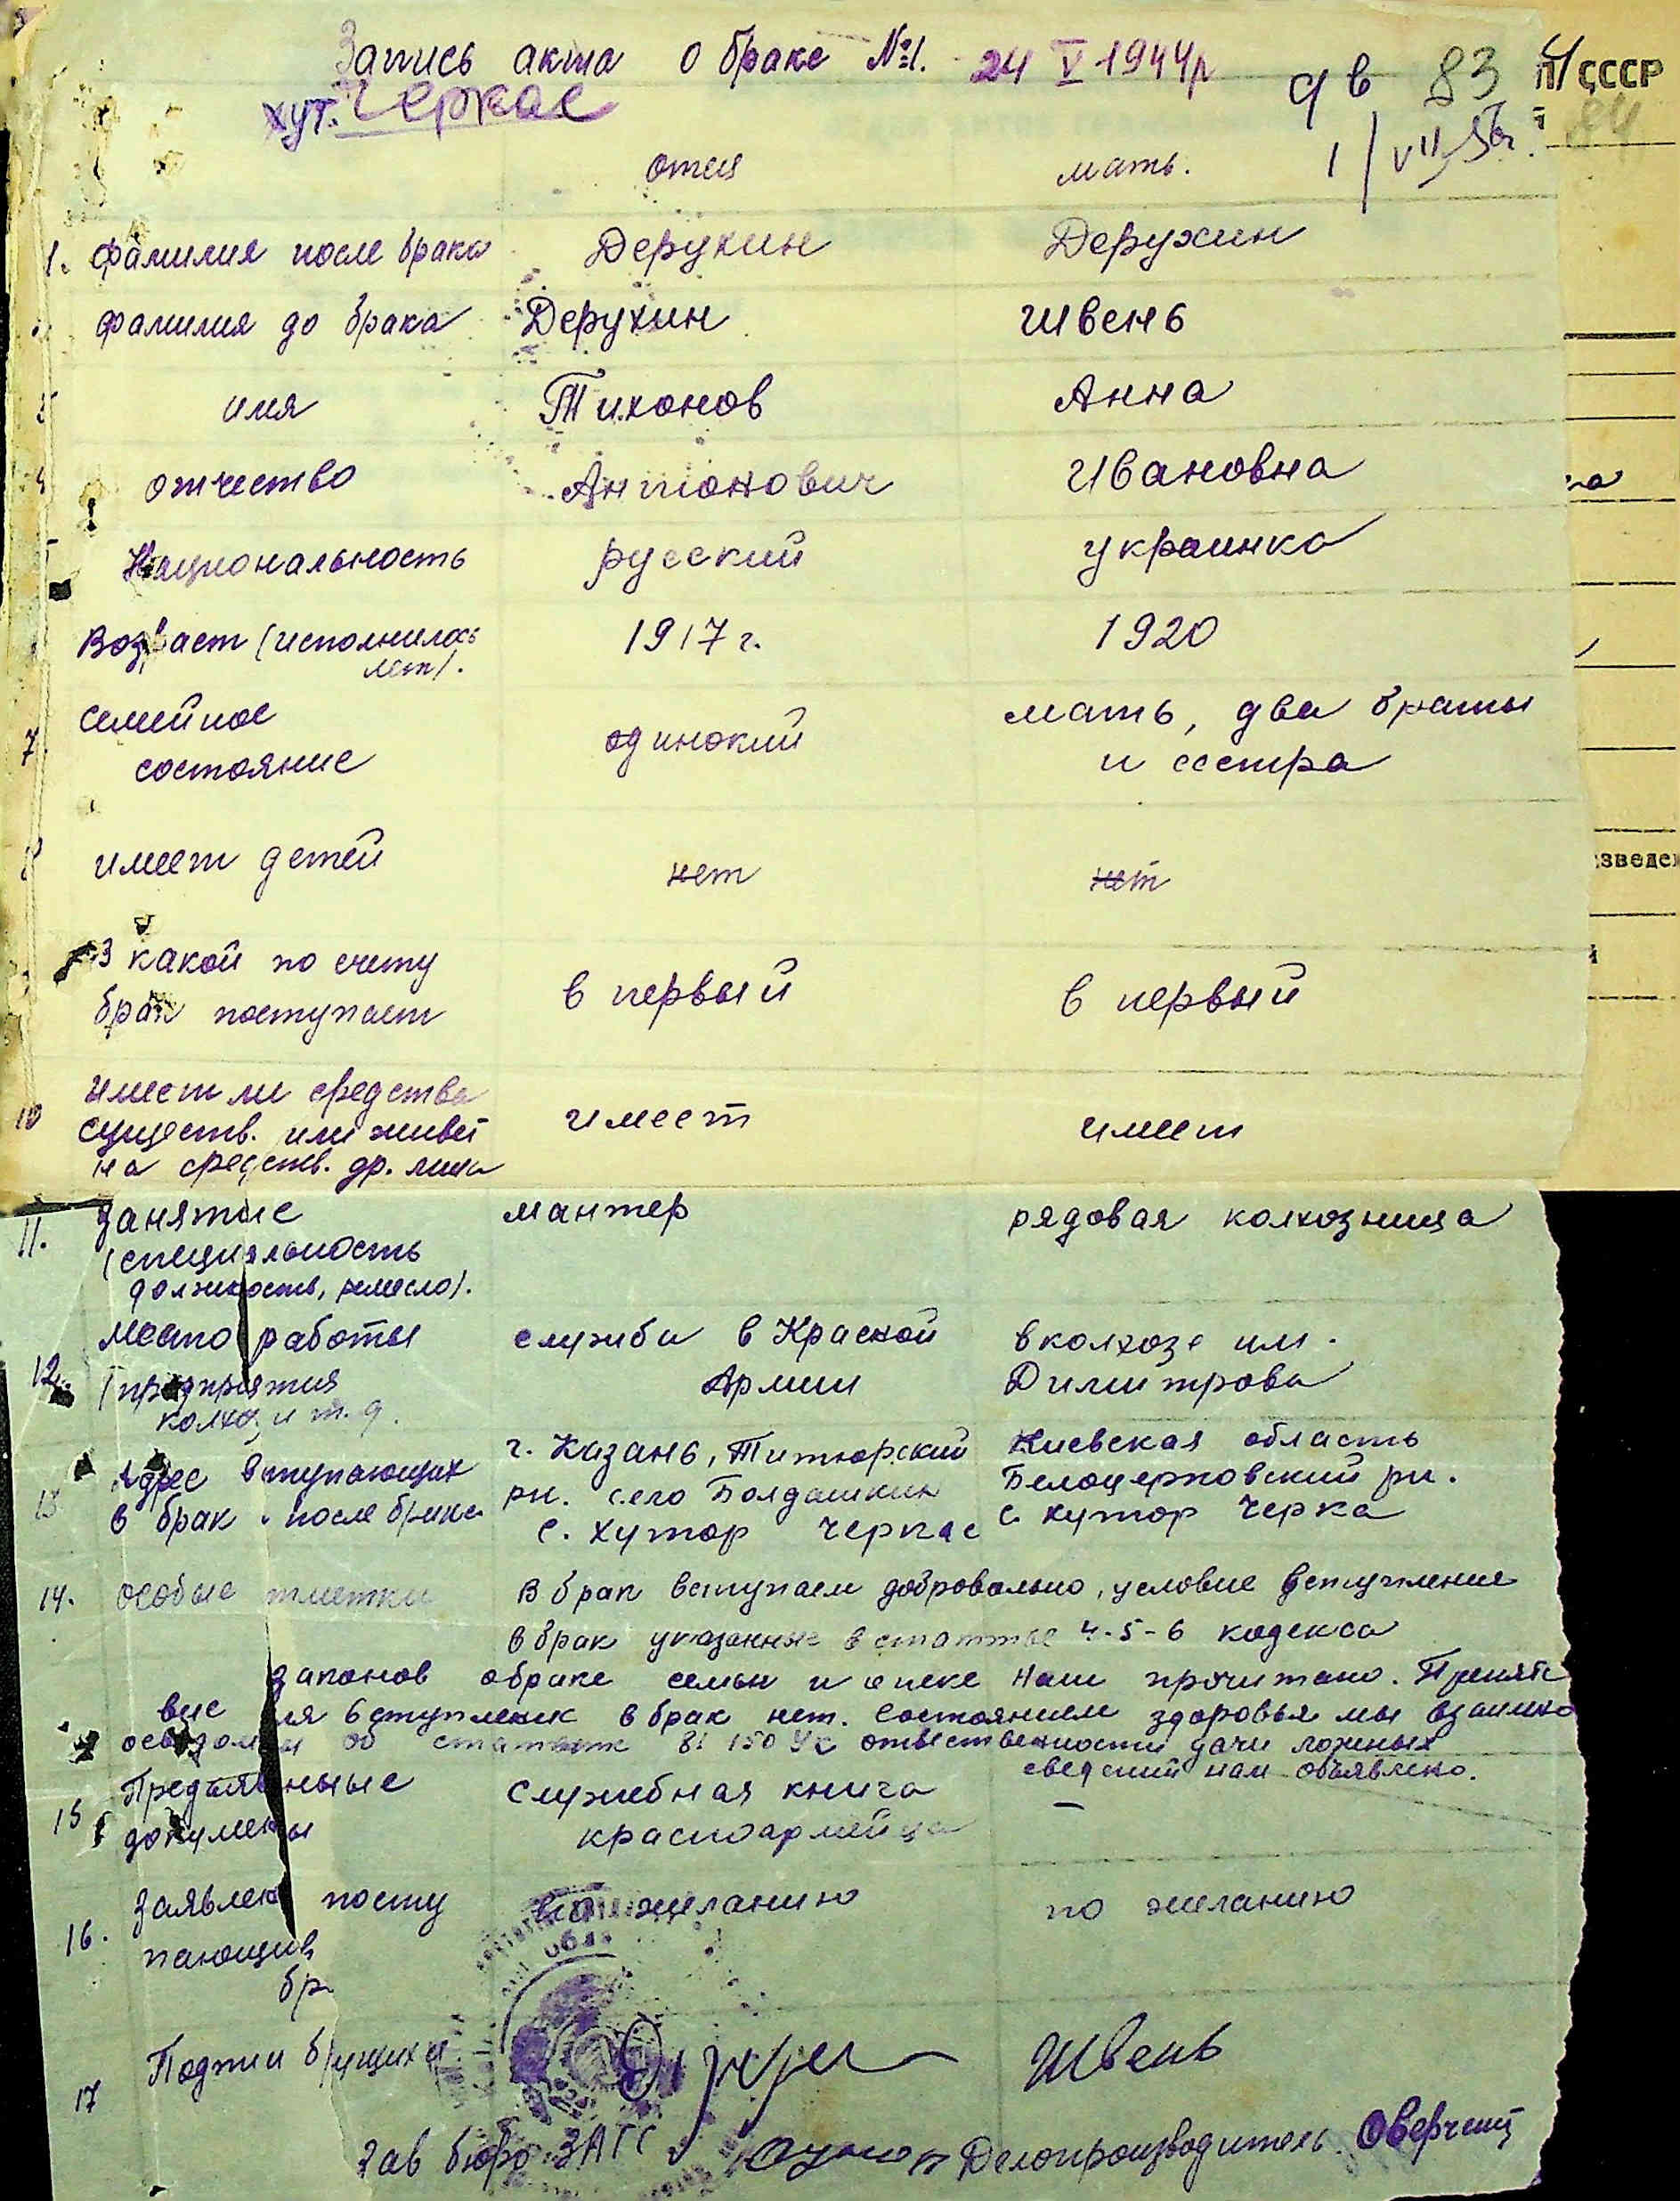 Запись акта о браке №1. 24 V 1944 р
хут. Черкас
дв 83
П СССР
84
1/VII
отец мать.
1. фамилия после брака Дерухин Дерухин
фамилия до брака Дерухин Швень
имя Тихонов Анна
отчество Антонович Ивановна
Национальность русский украинка
Возраст (исполнилось 1917 г. 1920
лет).
7 семейное одинокий мать, два браты
состояние и сестра
8 имеет детей нет нет
В какой по счету
брак поступает в первый в первый
10 имеет ли средства имеет имеет
существ. или живет
на средств. др. лица
зведе
11. Занятие мантер рядовая колхозница
(специальность
должность, ремесло).
12. Место работы служба в Красной в колхозе им.
(предприятия Армии Димитрова
колхоз и т.д.
13 Адрес вступающих г. Казань, Титюрский Киевская область
в брак после брака рн. село Болдашкин Белоцерковский рн.
с. хутор Черкас с. хутор Черка
14. особые тметки В брак вступаем добровольно, условие вступление
в брак указанные в статтье 4-5-6 кодекса
законов о браке семьи и опеке нам прочитано. Препятс
вие ия вступление в брак нет. Состоянием здоровья мы взаимно
осведомл об статьи 150 УК ответственности дачи ложных
сведений нам объявлено.
15 Предъявленные Служебная книга —
документы красноармейца
16. Заявлен посту по желанию по желанию
пающив
бр
обл
17 Швень
Зав бюро ЗАГС Делопроизводитель